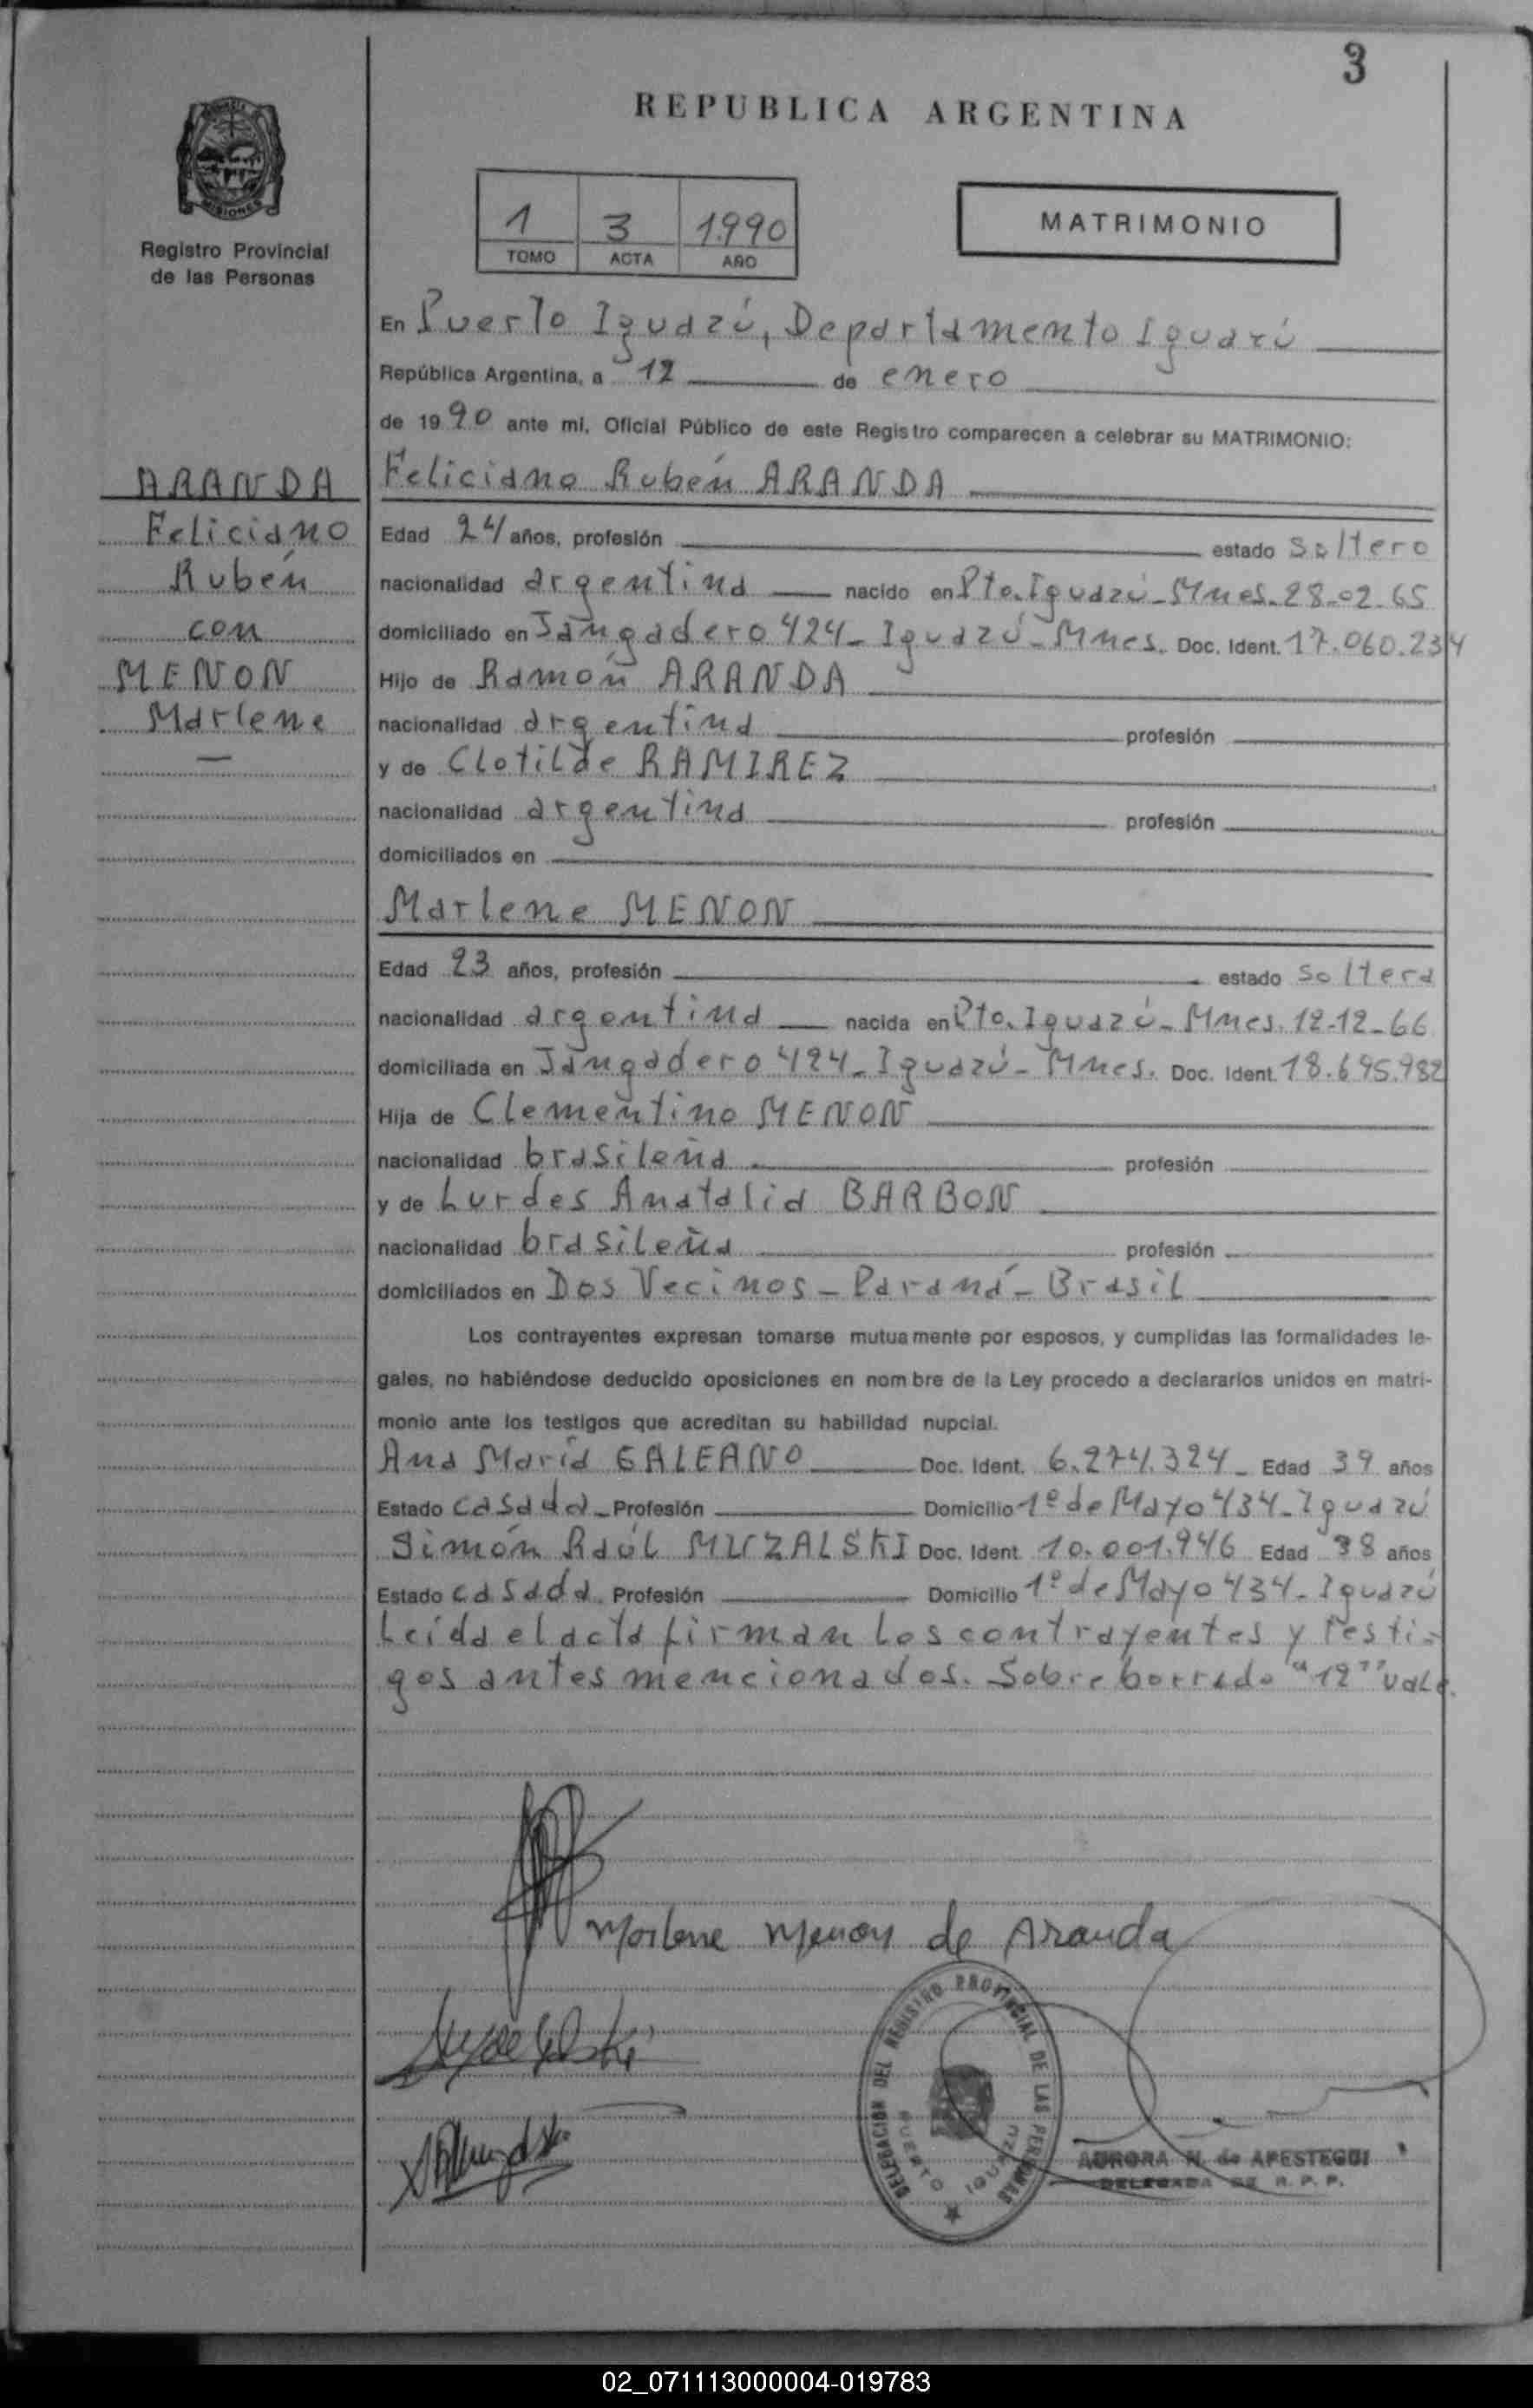 3
REPUBLICA ARGENTINA
MISIONES
Registro Provincial
de las Personas
1 3 1990
TOMO ACTA AÑO
MATRIMONIO
En Puerto Iguazú, Departamento Iguazú
República Argentina, a 12 de enero
de 1990 ante mi, Oficial Público de este Registro comparecen a celebrar su MATRIMONIO:
ARANDA
Feliciano
Rubén
con
MENON
Marlene
Feliciano Rubén ARANDA
Edad 24 años, profesión estado soltero
nacionalidad argentina nacido en Pto. Iguazú - Mnes. 28-02-65
domiciliado en Jangadero 424 - Iguazú - Mnes. Doc. Ident. 17.060.234
Hijo de Ramón ARANDA
nacionalidad argentina profesión
y de Clotilde RAMIREZ
nacionalidad argentina profesión
domiciliados en
Marlene MENON
Edad 23 años, profesión estado soltera
nacionalidad argentina nacida en Pto. Iguazú - Mnes. 12-12-66
domiciliada en Jangadero 424 - Iguazú - Mnes. Doc. Ident. 18.695.982
Hija de Clementino MENON
nacionalidad brasileña profesión
y de Lurdes Anatalia BARBON
nacionalidad brasileña profesión
domiciliados en Dos Vecinos - Paraná - Brasil
Los contrayentes expresan tomarse mutuamente por esposos, y cumplidas las formalidades le-
gales, no habiéndose deducido oposiciones en nombre de la Ley procedo a declararlos unidos en matri-
monio ante los testigos que acreditan su habilidad nupcial.
Ana María GALEANO Doc. Ident. 6.274.324 - Edad 39 años
Estado casada - Profesión Domicilio 1º de Mayo 434 - Iguazú
Simón Raúl Doc. Ident. 10.001.946 Edad 38 años
Estado casada. Profesión Domicilio 1º de Mayo 434 - Iguazú
Leída el acta firman los contrayentes y testi-
gos antes mencionados. Sobre borrado "12" vale.
Marlene Menon de Aranda
DELEGACION DEL REGISTRO PROVINCIAL DE LAS PERSONAS
PUERTO IGUAZU
AURORA N. de APESTEGUI
DELEGADA DE R. P. P.
02_071113000004-019783